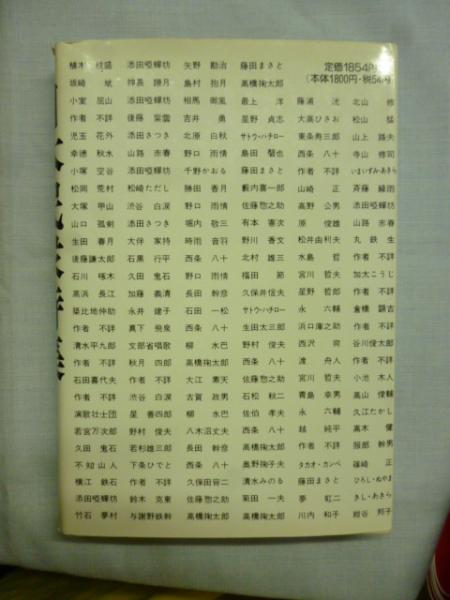 植木 枝盛 添田唖蝉坊 矢野 勘治 藤田まさと 定価1854円
坂崎 斌 神長 瞭月 島村 抱月 高橋掬太郎 (本体1800円・税54円)
小室 屈山 添田唖蝉坊 相馬 御風 最上 洋 藤浦 洸 北山 修
作者 不詳 後藤 紫雲 吉井 勇 星野 貞志 大高ひさお 松山 猛
児玉 花外 添田さつき 北原 白秋 サトウ・ハチロー 東条寿三郎 山上 路夫
幸徳 秋水 山路 赤春 野口 雨情 島田 磬也 西条 八十 寺山 修司
小塚 空谷 添田唖蝉坊 千野かおる 藤田まさと 作者 不詳 いまいずみ・あきら
松岡 荒村 松崎ただし 勝田 香月 藪内喜一郎 山崎 正 斉藤 緑雨
大塚 甲山 渋谷 白涙 野口 雨情 佐藤惣之助 高野 公男 添田唖蝉坊
山口 孤剣 添田さつき 堀内 敬三 有本 憲次 原 俊雄 山路 赤春
生田 春月 大伴 家持 時雨 音羽 野川 香文 松井由利夫 丸 鉄生
後藤謙太郎 石黒 行平 西条 八十 北村 雄三 水島 哲 作者 不詳
石川 啄木 久田 鬼石 野口 雨情 福田 節 宮川 哲夫 加太こうじ
高浜 長江 加藤 義清 長田 幹彦 久保井信夫 星野 哲郎 作者 不詳
築比地仲助 永井 建子 石田 一松 サトウ・ハチロー 永 六輔 倉橋 顕吉
作者 不詳 真下 飛泉 西条 八十 生田大三郎 浜口庫之助 作者 不詳
清水平九郎 文部省唱歌 柳 水巴 野村 俊夫 西沢 爽 谷川俊太郎
作者 不詳 秋月 四郎 高橋掬太郎 西条 八十 渡 舟人 作者 不詳
石田喜代夫 作者 不詳 大江 素天 佐藤惣之助 宮川 哲夫 小池 木人
作者 不詳 渋谷 白涙 古賀 政男 石松 秋二 青島 幸男 高山 俊輔
演歌壮士団 星 善四郎 柳 水巴 佐伯 孝夫 永 六輔 久江たかし
若宮万次郎 野村 俊夫 八木沼丈夫 西条 八十 越 純平 高木 健
久田 鬼石 若杉雄三郎 長田 幹彦 高橋掬太郎 作者 不詳 服部 幹男
不知山人 下条ひでと 西条 八十 奥野椰子夫 タカオ・カンベ 篠崎 正
横江 鉄石 作者 不詳 久保田宵二 清水みのる 藤田まさと ひろし・ぬやま
添田唖蝉坊 鈴木 克東 佐藤惣之助 菊田 一夫 夢 虹二 きし・あきら
竹石 夢村 与謝野鉄幹 高橋掬太郎 高橋掬太郎 川内 和子 紺谷 邦子